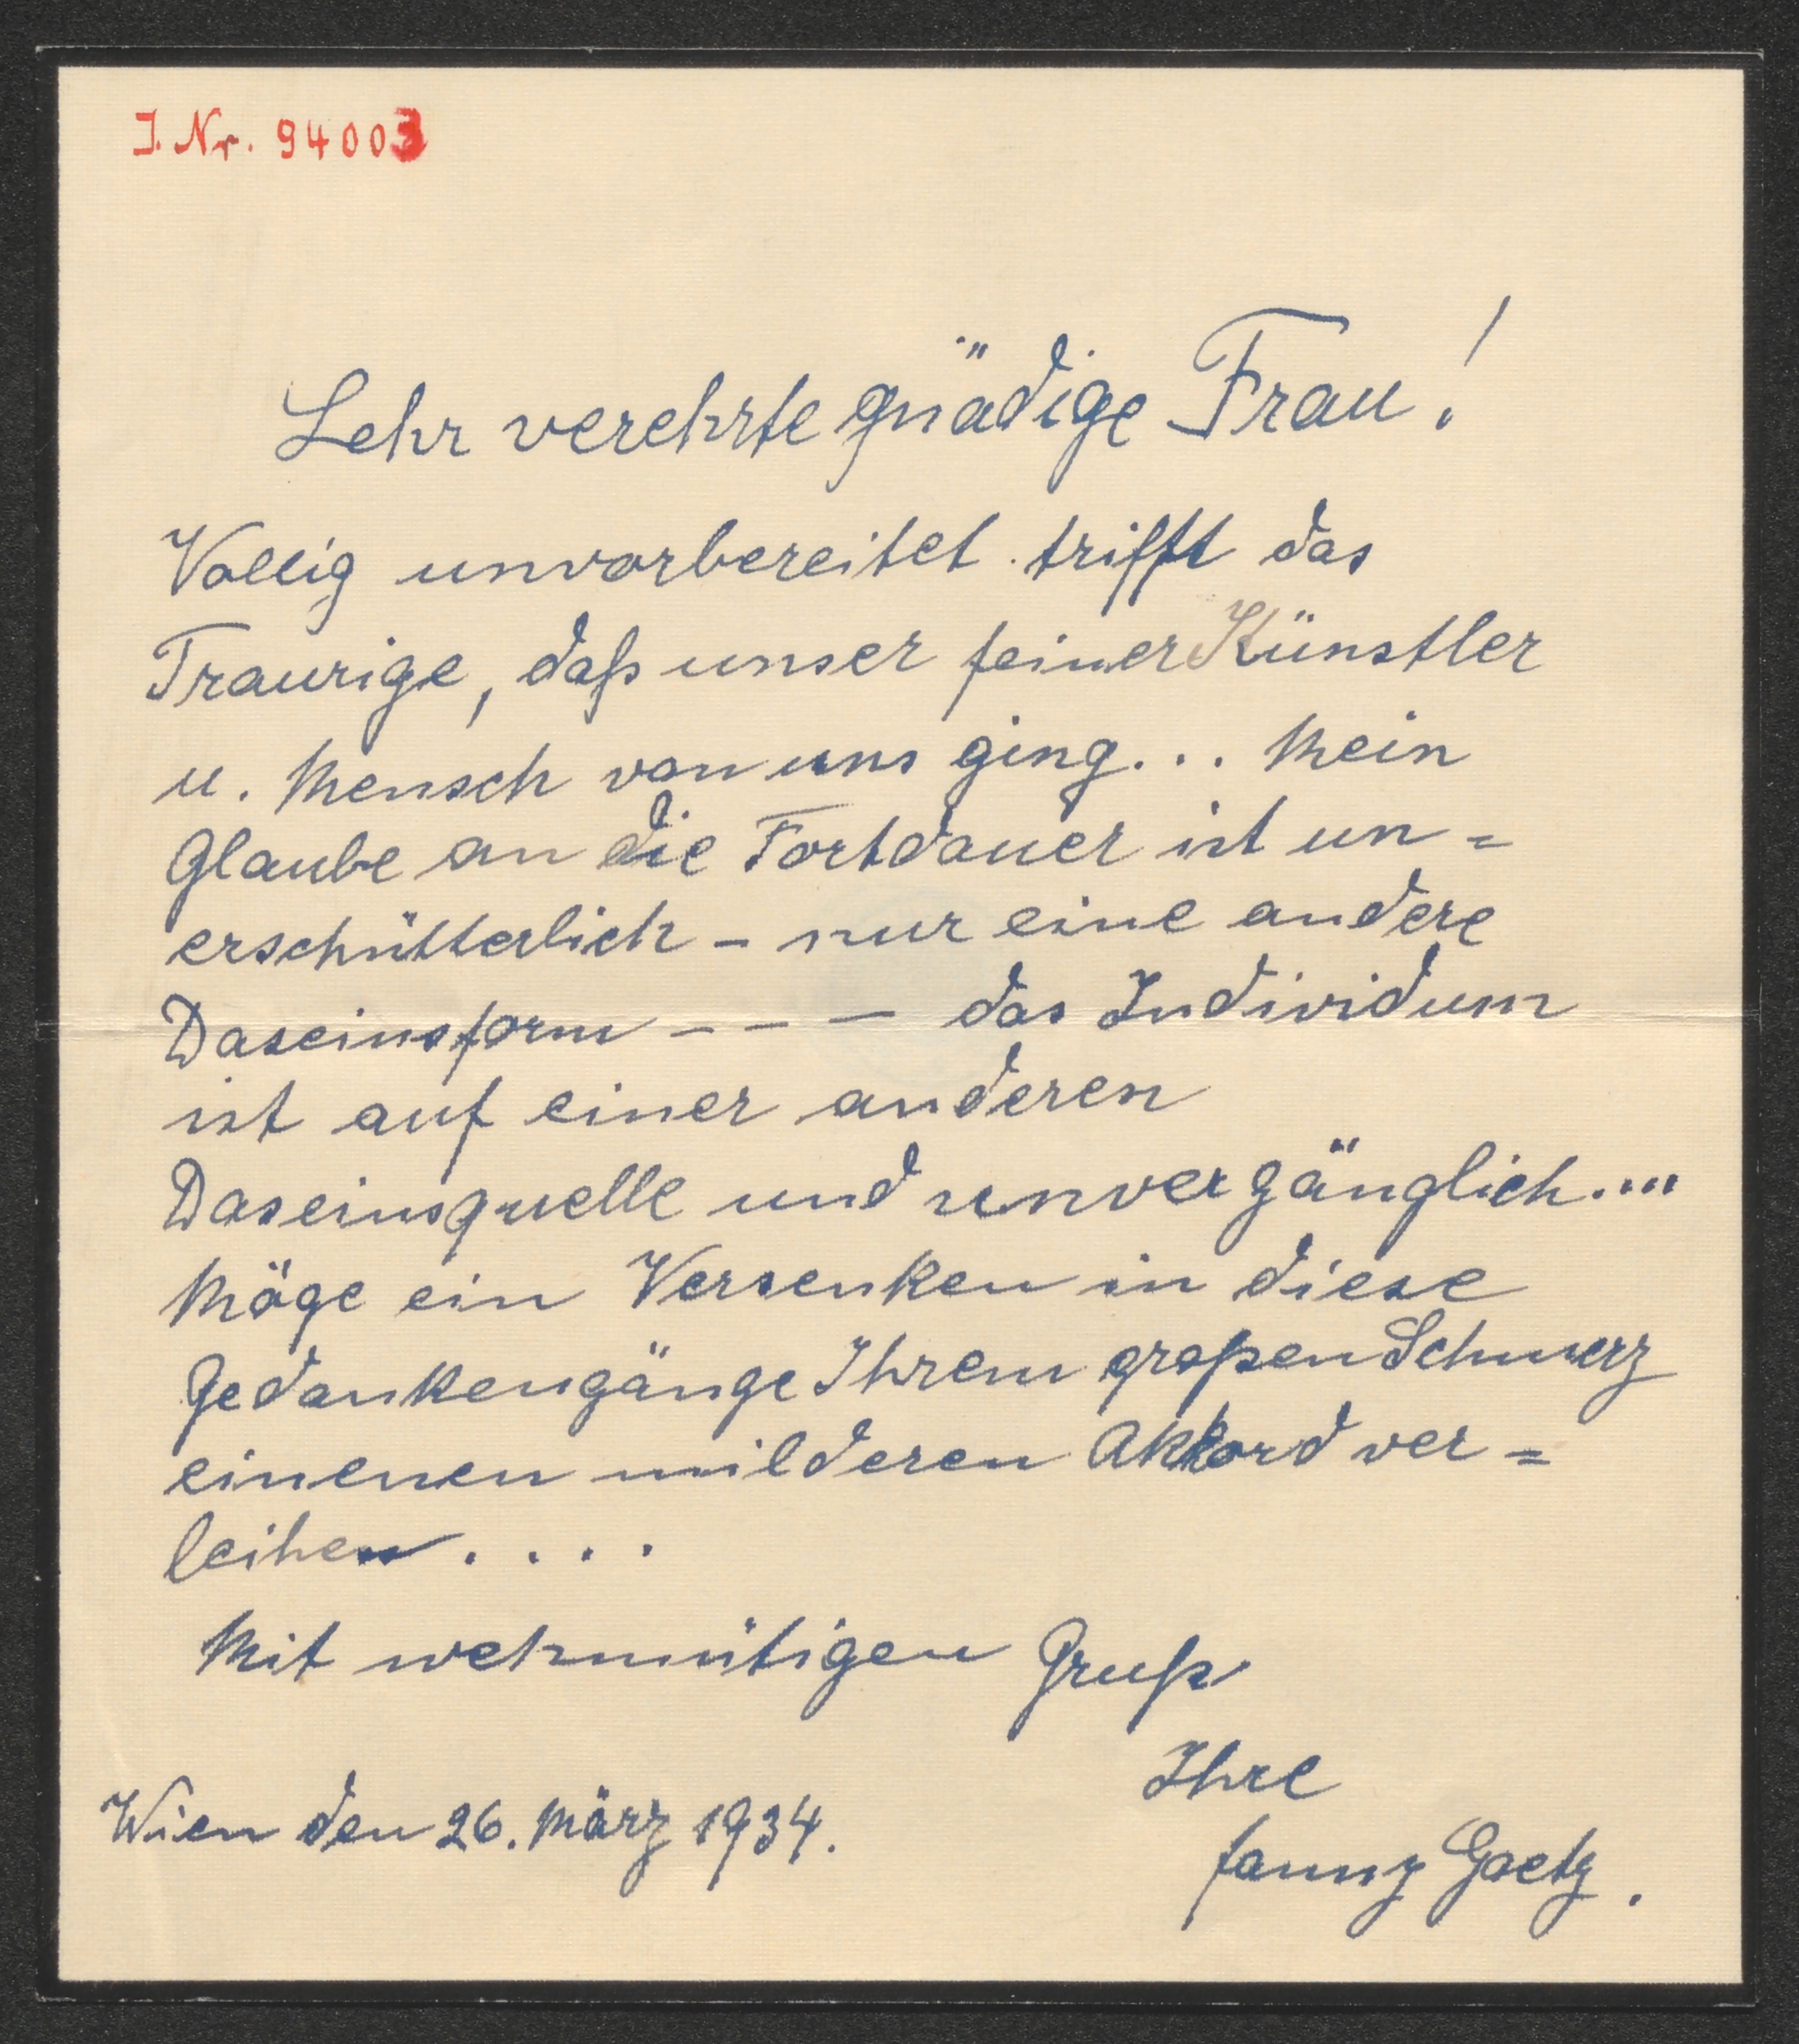 J. Nr. 94003
Sehr verehrte gnädige Frau!
Vollig unvorbereitet trifft das
Traurige, daß unser feiner Künstler
u. Mensch von uns ging... Mein
Glaube an die Fortdauer ist un=
erschütterlich - nur eine andere
Daseinsform - - - das Individum
ist auf einer anderen
Daseinsquelle und unvergänglich....
Möge ein Versenken in diese
Gedankengänge Ihrem großen Schmerz
einenen milderen Akkord ver=
leihen....
Mit wehmütigen Gruß
Ihre
Wien den 26. März 1934.
Fanny Goetz.